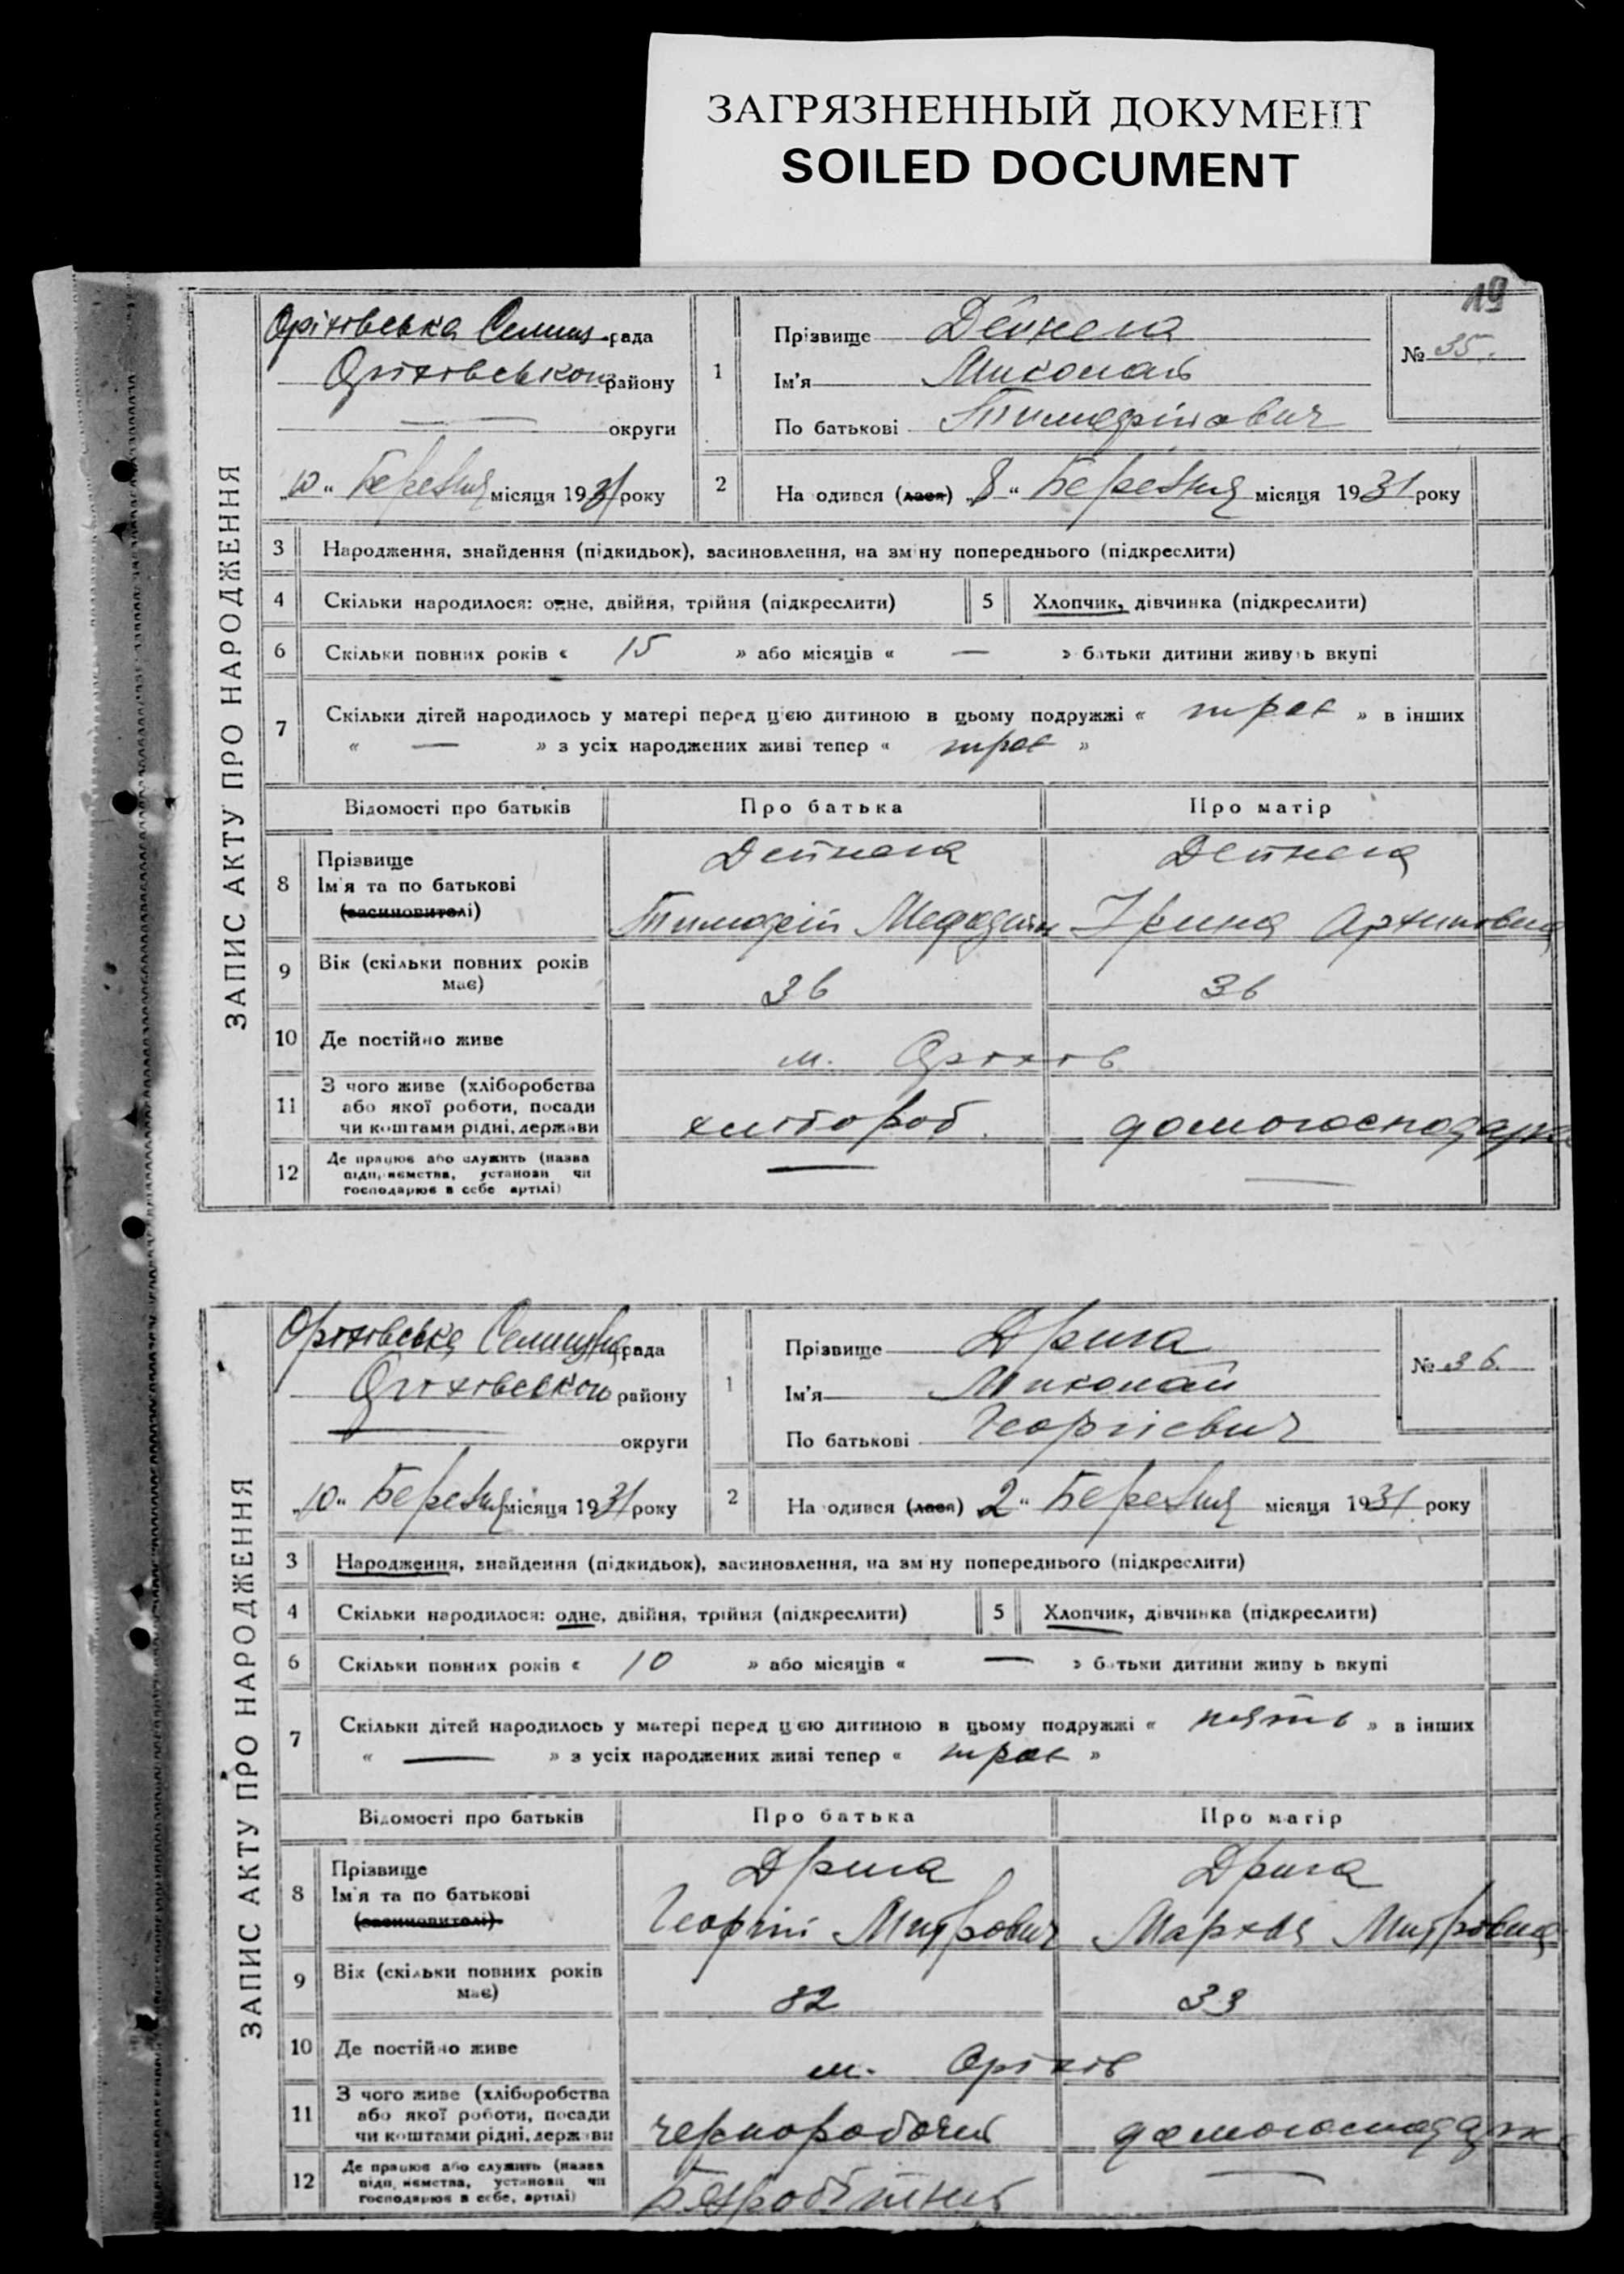 ЗАГРЯЗНЕННЫЙ ДОКУМЕНТ
SOILED DOCUMENT
19
ЗАПИС АКТУ ПРО НАРОДЖЕННЯ
Оріхівська Селищ. рада
Оріхівського району
— округи
„10“ Березня місяця 1931 року
1
Прізвище Дейнега
Ім'я Миколай
По батькові Тимофійович
№ 35.
2
На одився (лася) „8“ Березня місяця 1931 року
3 Народження, знайдення (підкидьок), засиновлення, на зм ну попереднього (підкреслити)
4 Скільки народилося: одне, двійня, трійня (підкреслити) 5 Хлопчик, дівчинка (підкреслити)
6 Скільки повних років « 15 » або місяців « — » батьки дитини живуть вкупі
7 Скільки дітей народилось у матері перед цією дитиною в цьому подружжі « троє » в інших
« — » з усіх народжених живі тепер « троє »
Відомості про батьків Про батька Про матір
8 Прізвище Дейнега Дейнега
Ім'я та по батькові
(засиновителі) Тимофій Ірина Архиповна
9 Вік (скільки повних років має) 36 36
10 Де постійно живе м. Оріхів
11 З чого живе (хліборобства
або якої роботи, посади
чи коштами рідні, держави хлібороб. домогосподарка
12 Де працює або служить (назва
підприємства, установи чи
господарює в себе артілі) — —
ЗАПИС АКТУ ПРО НАРОДЖЕННЯ
Оріхівська Селищна рада
Оріхівського району
— округи
„10“ Березня місяця 1931 року
1
Прізвище Дрига
Ім'я Миколай
По батькові Георгієвич
№ 36.
2
На одився (лася) 2“ Березня місяця 1931 року
3 Народження, знайдення (підкидьок), засиновлення, на зм ну попереднього (підкреслити)
4 Скільки народилося: одне, двійня, трійня (підкреслити) 5 Хлопчик, дівчинка (підкреслити)
6 Скільки повних років « 10 » або місяців « — » батьки дитини живу ь вкупі
7 Скільки дітей народилось у матері перед цією дитиною в цьому подружжі « пять » в інших
« — » з усіх народжених живі тепер « троє »
Відомості про батьків Про батька Про матір
8 Прізвище Дрига Дрига
Ім'я та по батькові
(засиновителі) Георгій Митрович Марфа Митровна
9 Вік (скільки повних років має) 32 33
10 Де постійно живе м. Оріхів
11 З чого живе (хліборобства
або якої роботи, посади
чи коштами рідні, держави чернорабочий домогосподарка
12 Де працює або служить (назва
підприємства, установи чи
господарює в себе, артілі) Безробітний —